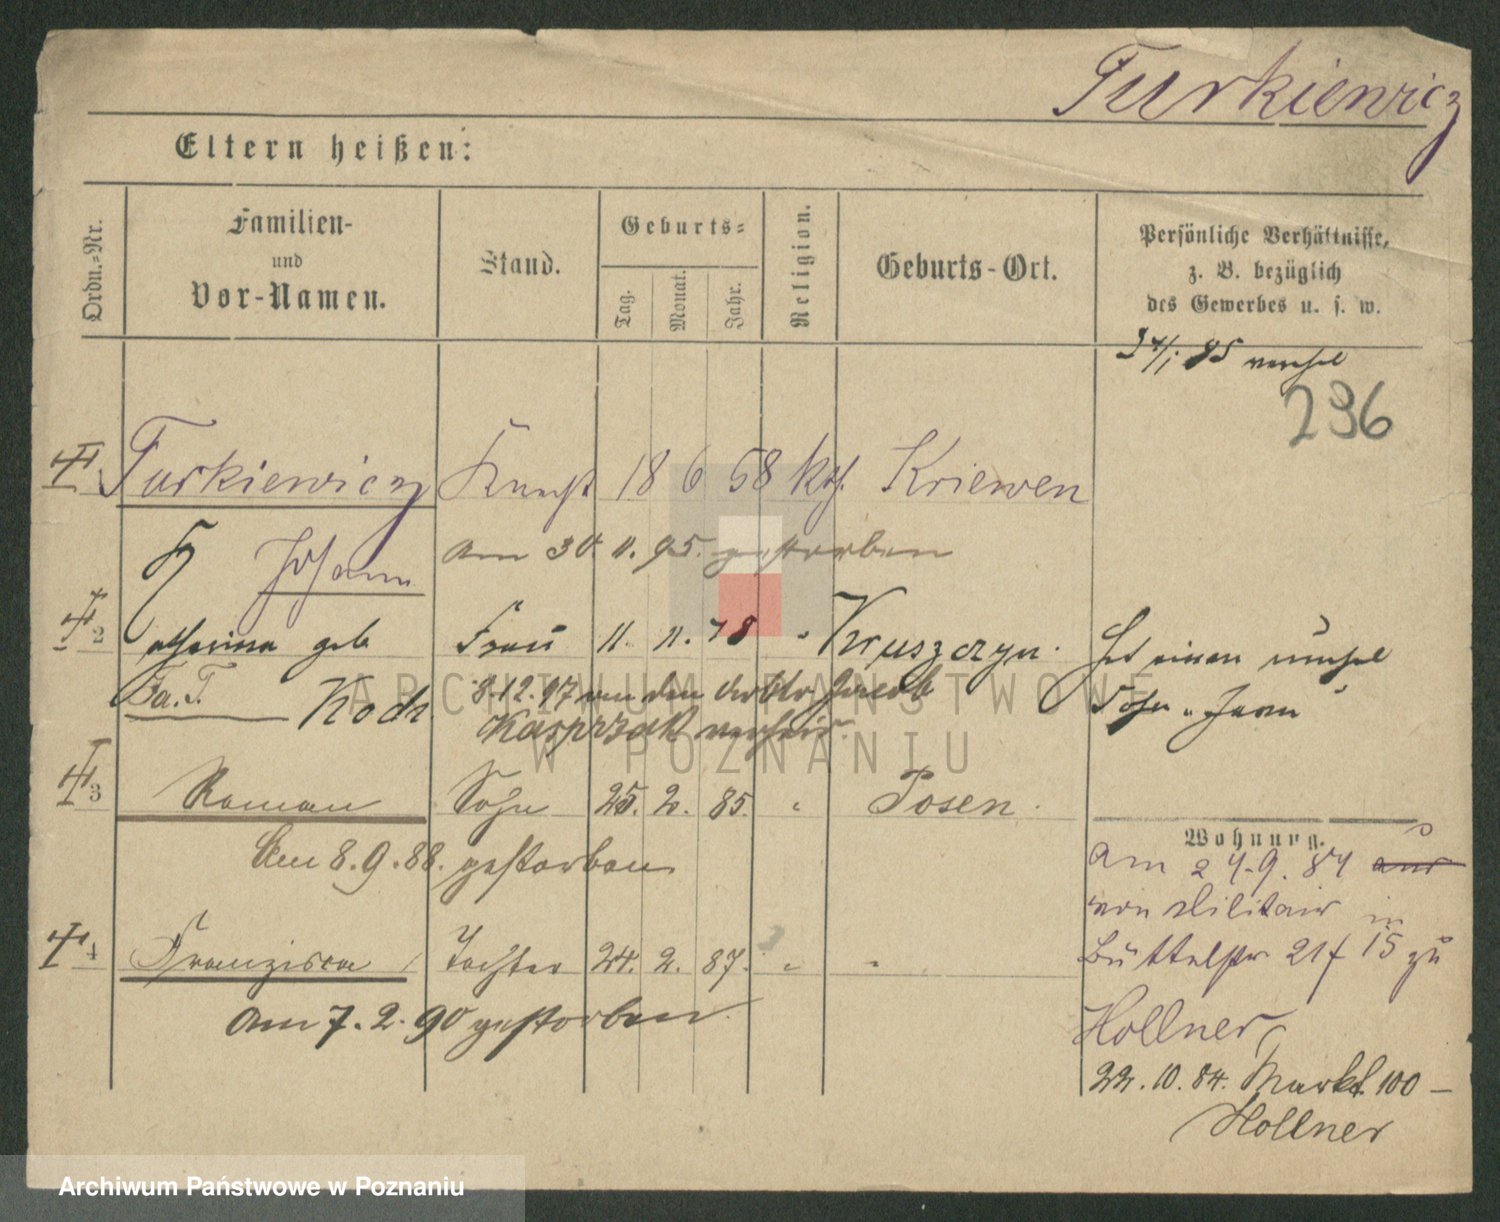 Turkiewicz
Eltern heißen:
Ordn.-Nr.
Familien-
und
Vor-Namen.
Stand.
Geburts-
Tag.
Monat.
Jahr.
Religion.
Geburts-Ort.
Persönliche Verhältnisse,
z. B. bezüglich
des Gewerbes u. s. w.
85
236
Turkiewicz
18 6 58 kth. Kriewen
Johann
am 30. 11. 95. gestorben
2
geb Frau 11. 11. Kruszczyn.
Hat einen
Koch
8.12.97 von den
Kasprzak
Sohn
3
Roman Sohn 25. 2. 85. " Posen.
Am 8.9.88. gestorben
Wohnung.
am 24.9.84 aus
von Militair in
Büttelstr 21 15 zu
4
Franziska Tochter 24. 2. 87. " "
am 7.2.90 gestorben
Hollner
22.10.84. Markt 100 –
Hollner
ARCHIWUM PAŃSTWOWE
W POZNANIU
Archiwum Państwowe w Poznaniu